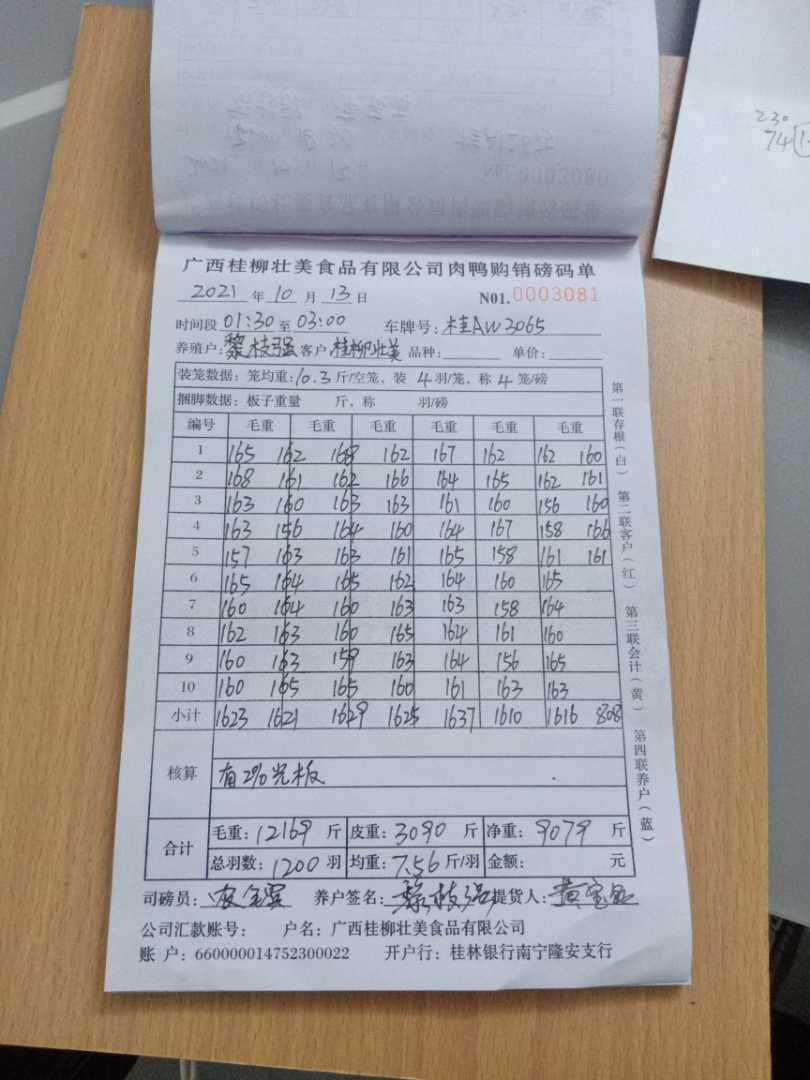 230
74
广西桂柳壮美食品有限公司肉鸭购销磅码单
2021 年 10 月 13 日 N01.0003081
时间段 01:30 至 03:00 车牌号: 桂AW3065
养殖户: 黎枝强 客户: 桂柳壮美 品种: 单价:
装笼数据: 笼均重: 10.3 斤/空笼、装 4 羽/笼、称 4 笼/磅
捆脚数据: 板子重量 斤、称 羽/磅
编号 毛重 毛重 毛重 毛重 毛重 毛重
1 165 162 168 162 167 162 162 160
2 168 161 162 166 164 165 162 161
3 163 160 163 163 161 160 156 160
4 163 156 164 160 164 167 158 166
5 157 163 163 161 165 158 161 161
6 165 164 165 162 164 160 165
7 160 164 160 163 163 158 164
8 162 163 160 165 164 161 160
9 160 163 159 163 164 156 165
10 160 165 165 160 161 163 163
小计 1623 1621 1629 1625 1637 1610 1616 808
核算 有2%光板
合计 毛重: 12169 斤 皮重: 3090 斤 净重: 9079 斤
总羽数: 1200 羽 均重: 7.56 斤/羽 金额: 元
司磅员: 养户签名: 黎枝强 提货人:
公司汇款账号: 户名: 广西桂柳壮美食品有限公司
账 户: 660000014752300022 开户行: 桂林银行南宁隆安支行
第一联存根(白) 第二联客户(红) 第三联会计(黄) 第四联养户(蓝)